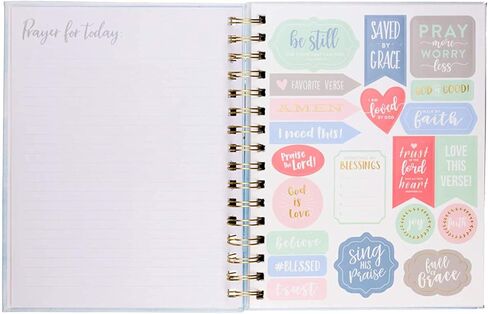 Prayer for today:
be still
SAVED
BY
GRACE
PRAY
more
WORRY
less
FAVORITE VERSE
GOD IS GOOD!
AMEN
I AM
loved
BY GOD
faith
I need this!
Praise
the Lord!
BLESSINGS
trust
in the
lord
with all your
heart
LOVE
THIS
VERSE!
God
is
Love
joy
faith
believe
#BLESSED
trust
sing
HIS
Praise
full
of
Grace